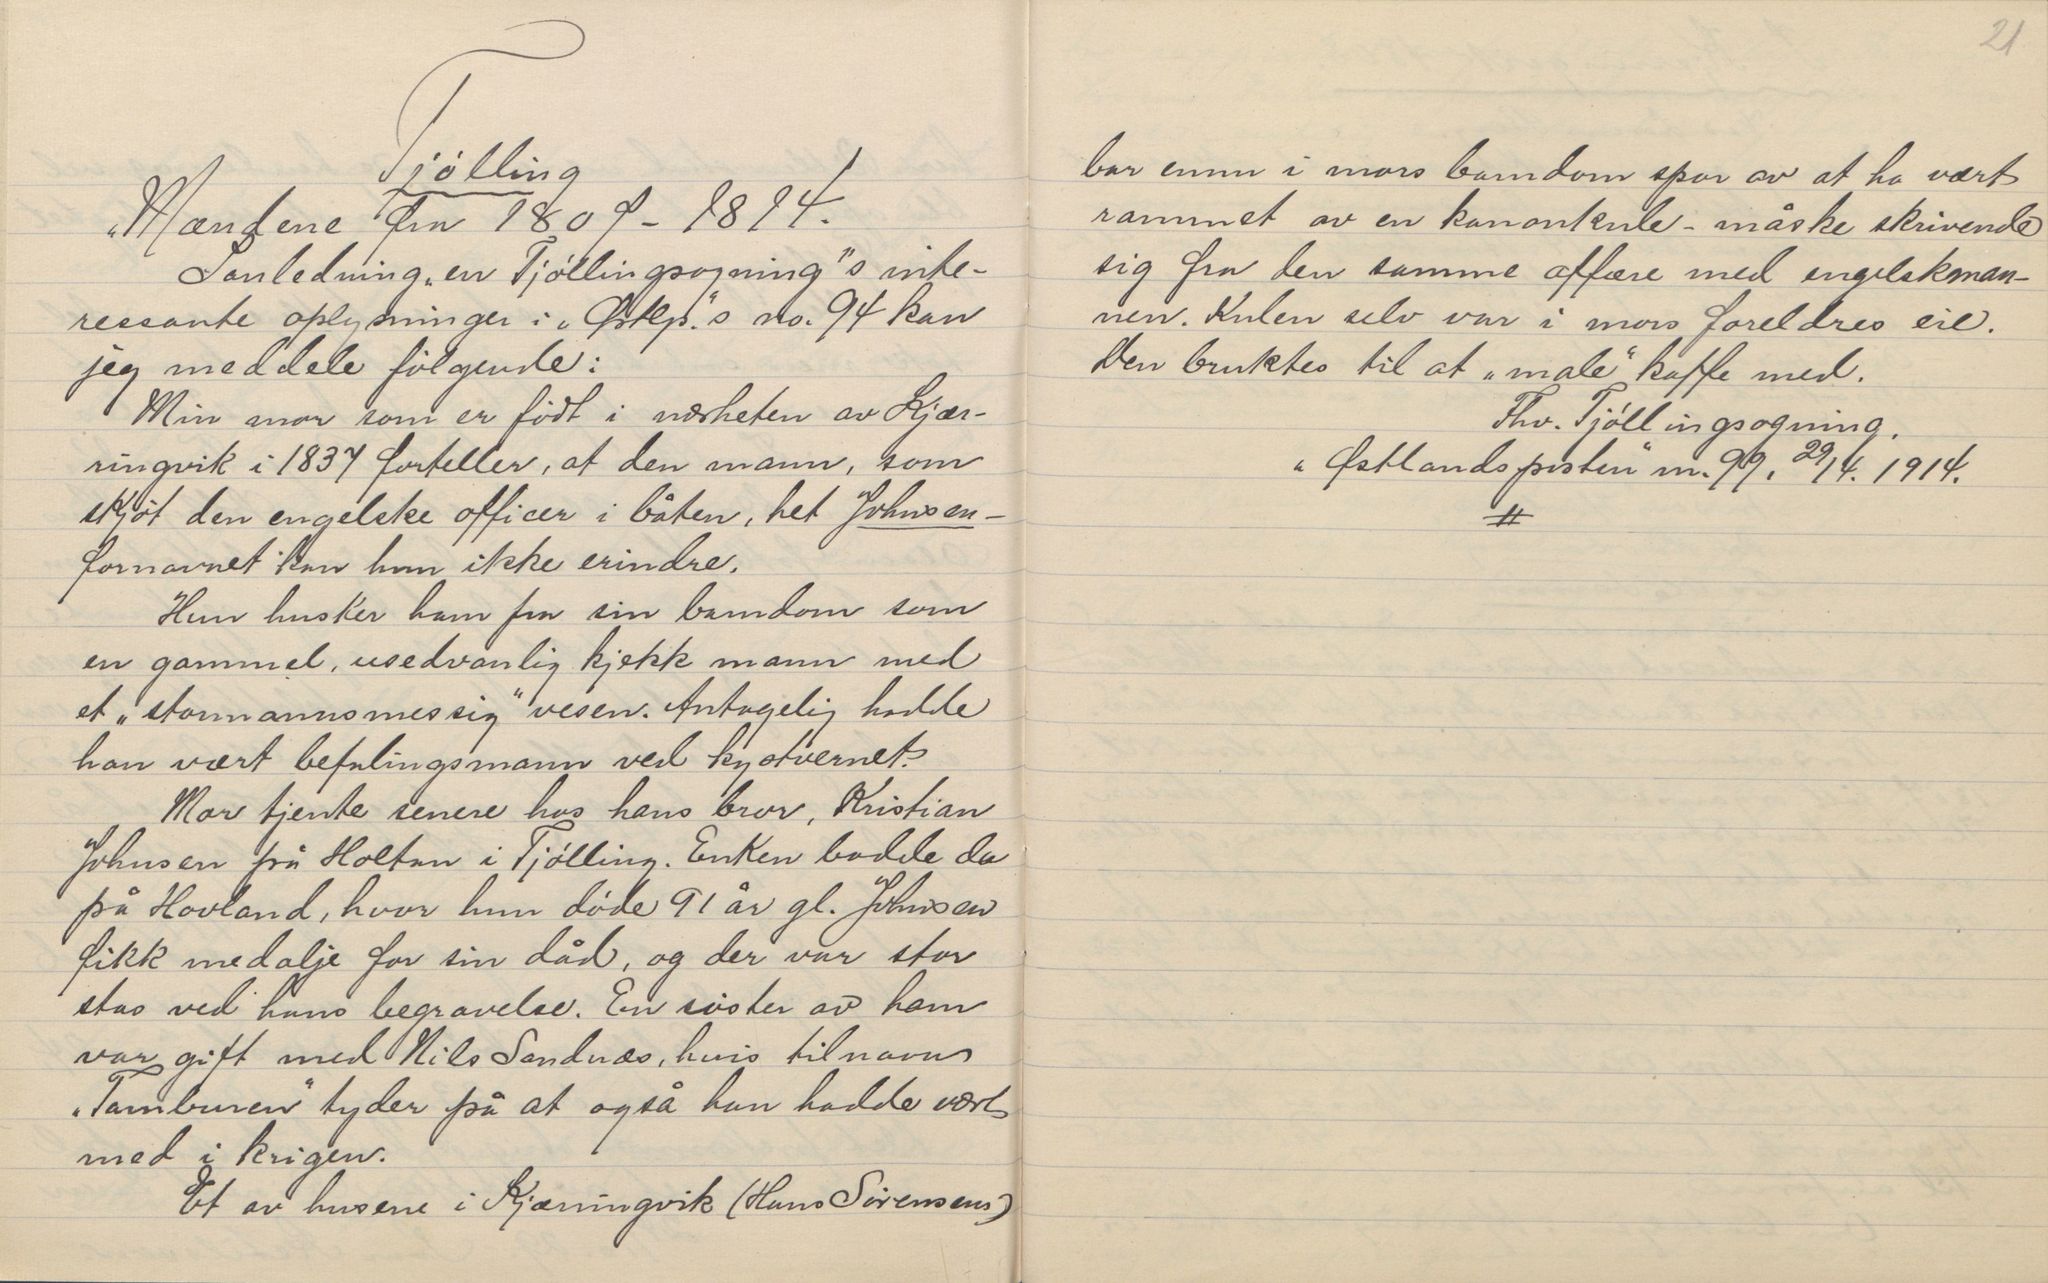 Tjölling
„Mændene fra 1807-1814.
I anledning „en Tjöllingsogning"s inte-
ressante oplysninger i „Østlp."s no. 94 kan
jeg meddele fölgende:
Min mor som er födt i nærheten av Kjær-
ringvik i 1837 forteller, at den mann, som
skjöt den engelske officer i båten, het Johnsen -
fornavnet kan hun ikke erindre.
Hun husker ham fra sin barndom som
en gammel, usedvanlig kjekk mann med
et „stormannsmessig" vesen. Antagelig hadde
han vært befalingsmann ved kystvernet.
Mor tjente senere hos hans bror, Kristian
Johnsen på Holtan i Tjölling. Enken bodde da
på Hovland, hvor hun döde 91 år gl. Johnsen
fikk medalje for sin dåd, og der var stor
stas ved hans begravelse. En söster av ham
var gift med Nils Sandnæs, hvis tilnavn
„Tamburen" tyder på at også han hadde vært
med i krigen.
Et av husene i Kjærringvik (Hans Sörensens)
21
bar ennu i mors barndom spor av at ha vært
rammet av en kanonkule - måske skrivende
sig fra den samme affære med engelskman-
nen. Kulen selv var i mors foreldres eie.
Den bruktes til at „male" kaffe med.
Thv. Tjöllingsogning.
„Østlandsposten" nr. 99. 29/4. 1914.